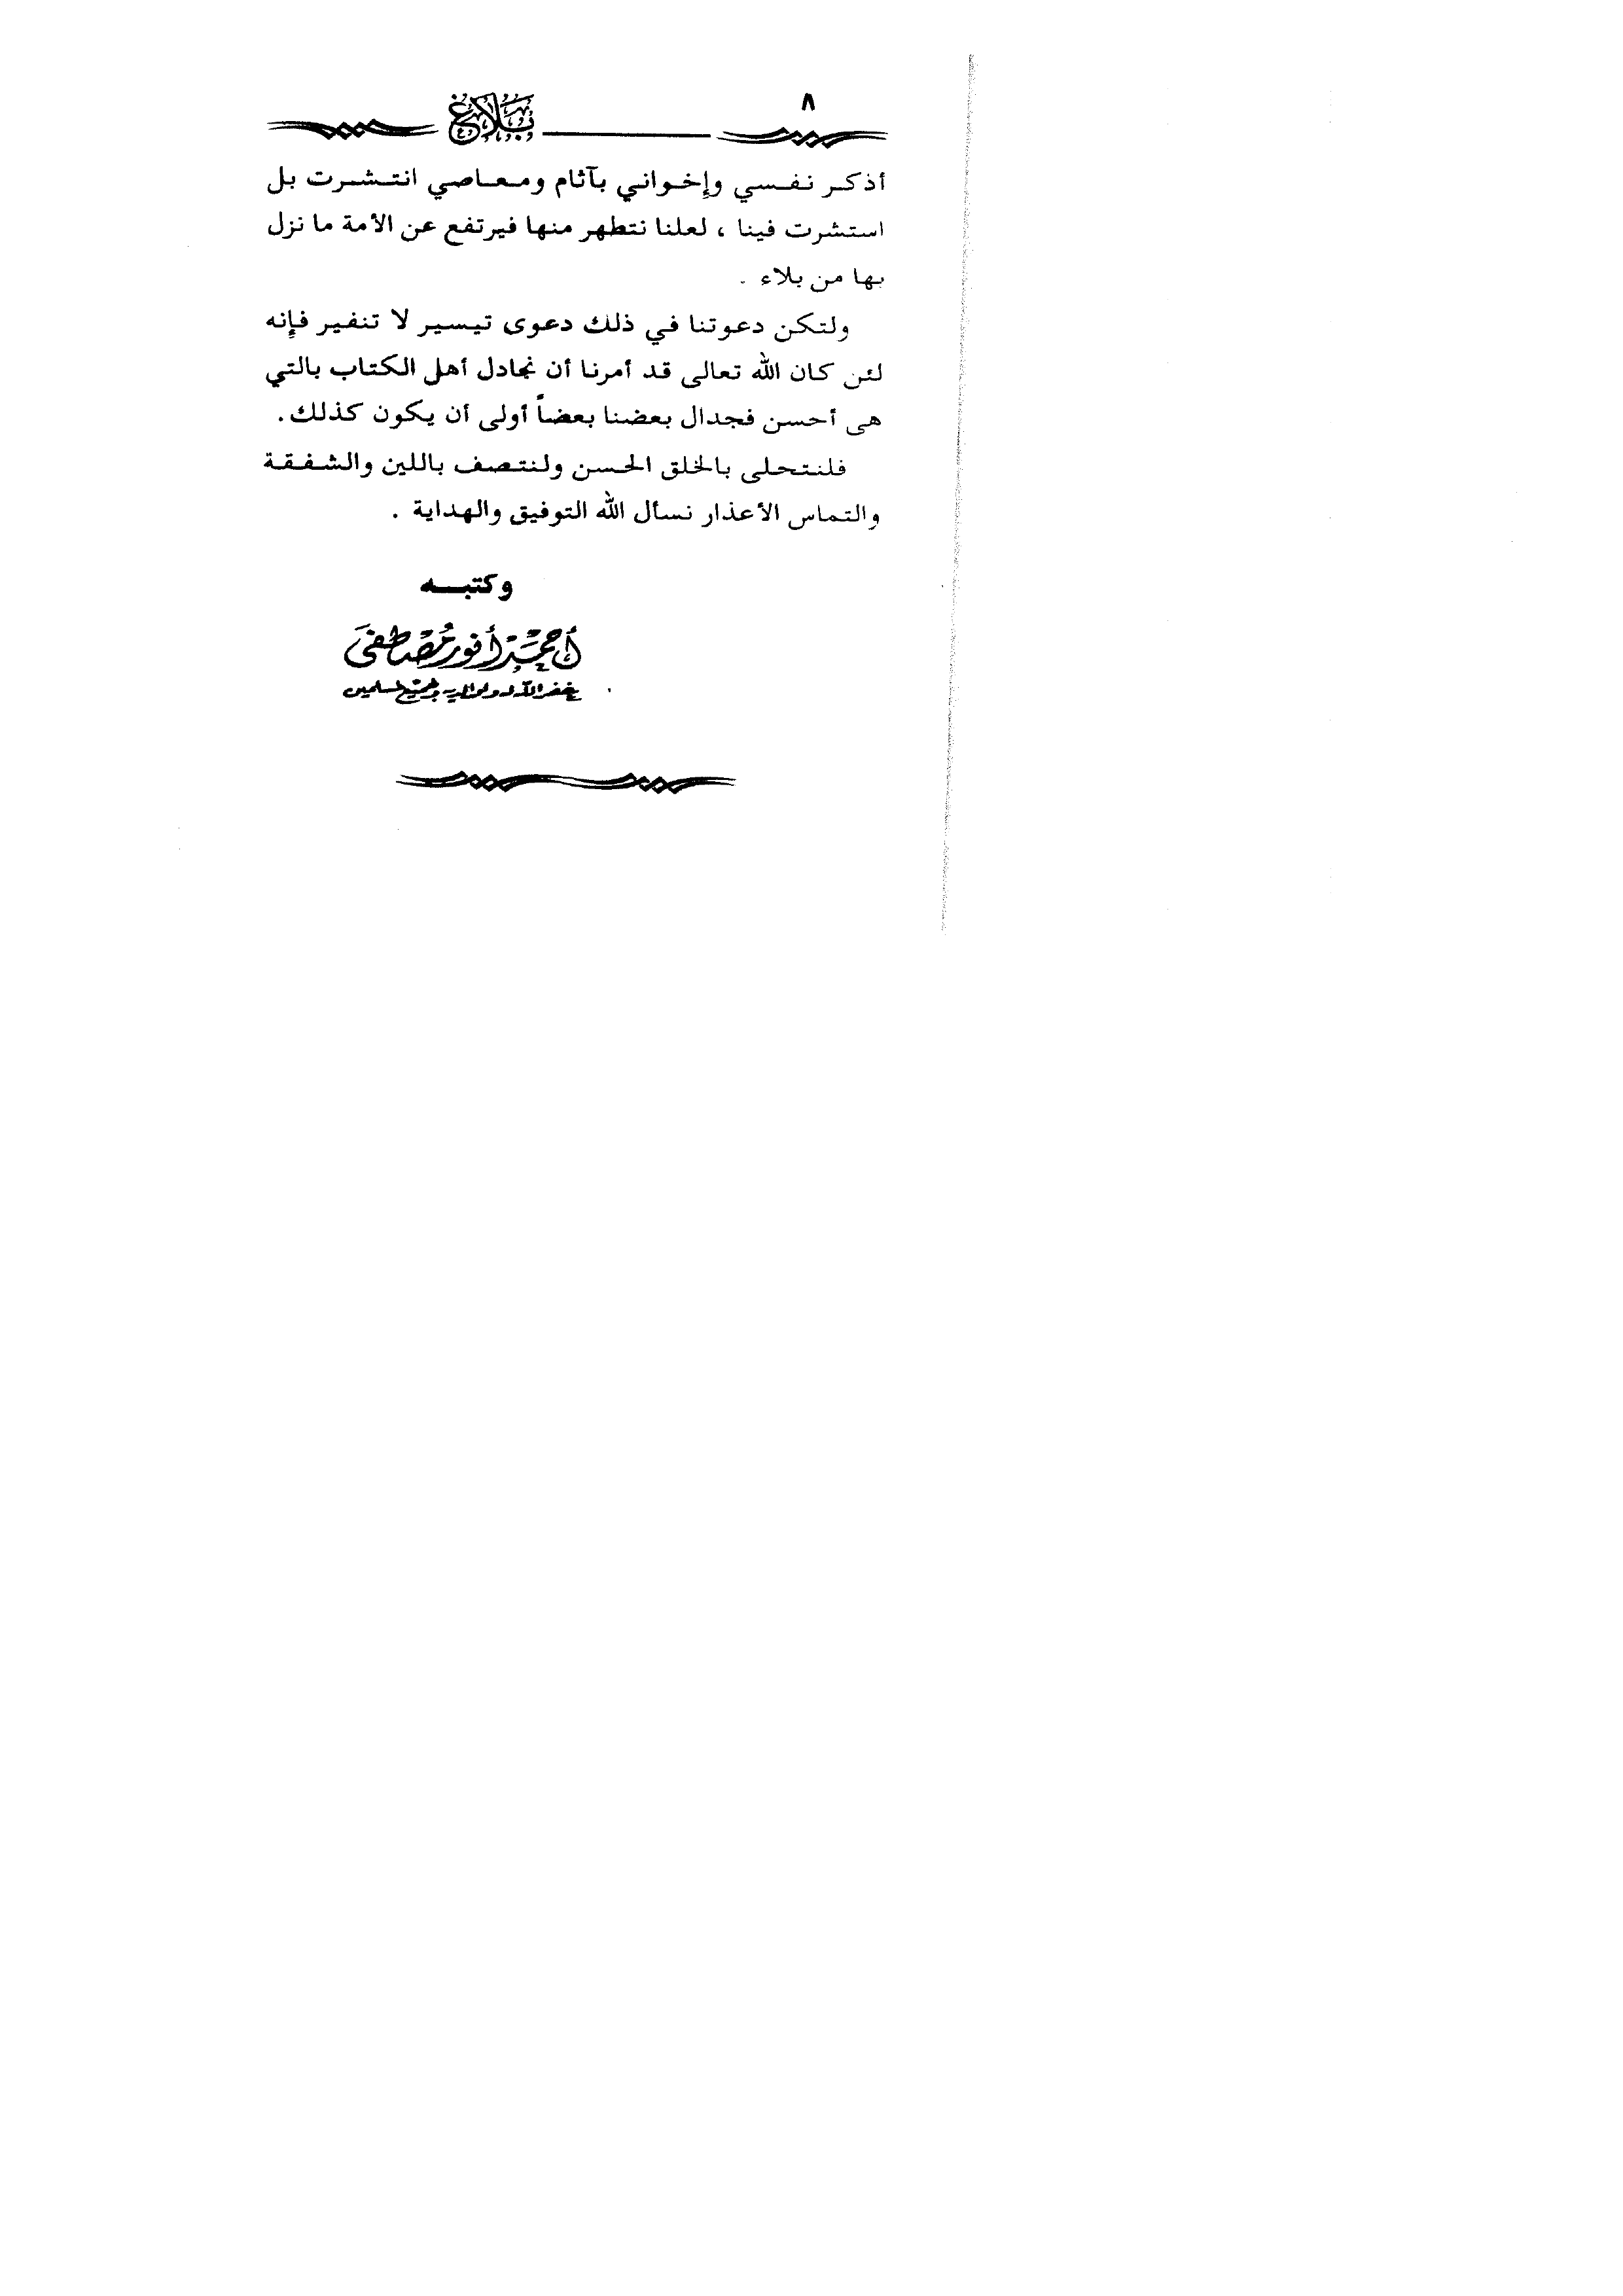 ٨
بلاغ
أذكر نفسي وإخواني بآثام ومعاصي انتشرت بل
استشرت فينا ، لعلنا نتطهر منها فيرتفع عن الأمة ما نزل
بها من بلاء .
ولتكن دعوتنا في ذلك دعوى تيسير لا تنفير فإنه
لئن كان الله تعالى قد أمرنا أن نجادل أهل الكتاب بالتي
هى أحسن فجدال بعضنا بعضاً أولى أن يكون كذلك .
فلنتحلى بالخلق الحسن ولنتصف باللين والشفقة
والتماس الأعذار نسأل الله التوفيق والهداية .
وكتبه
أحمد أنور مصطفى
غفر الله له ولوالديه ولجميع المسلمين